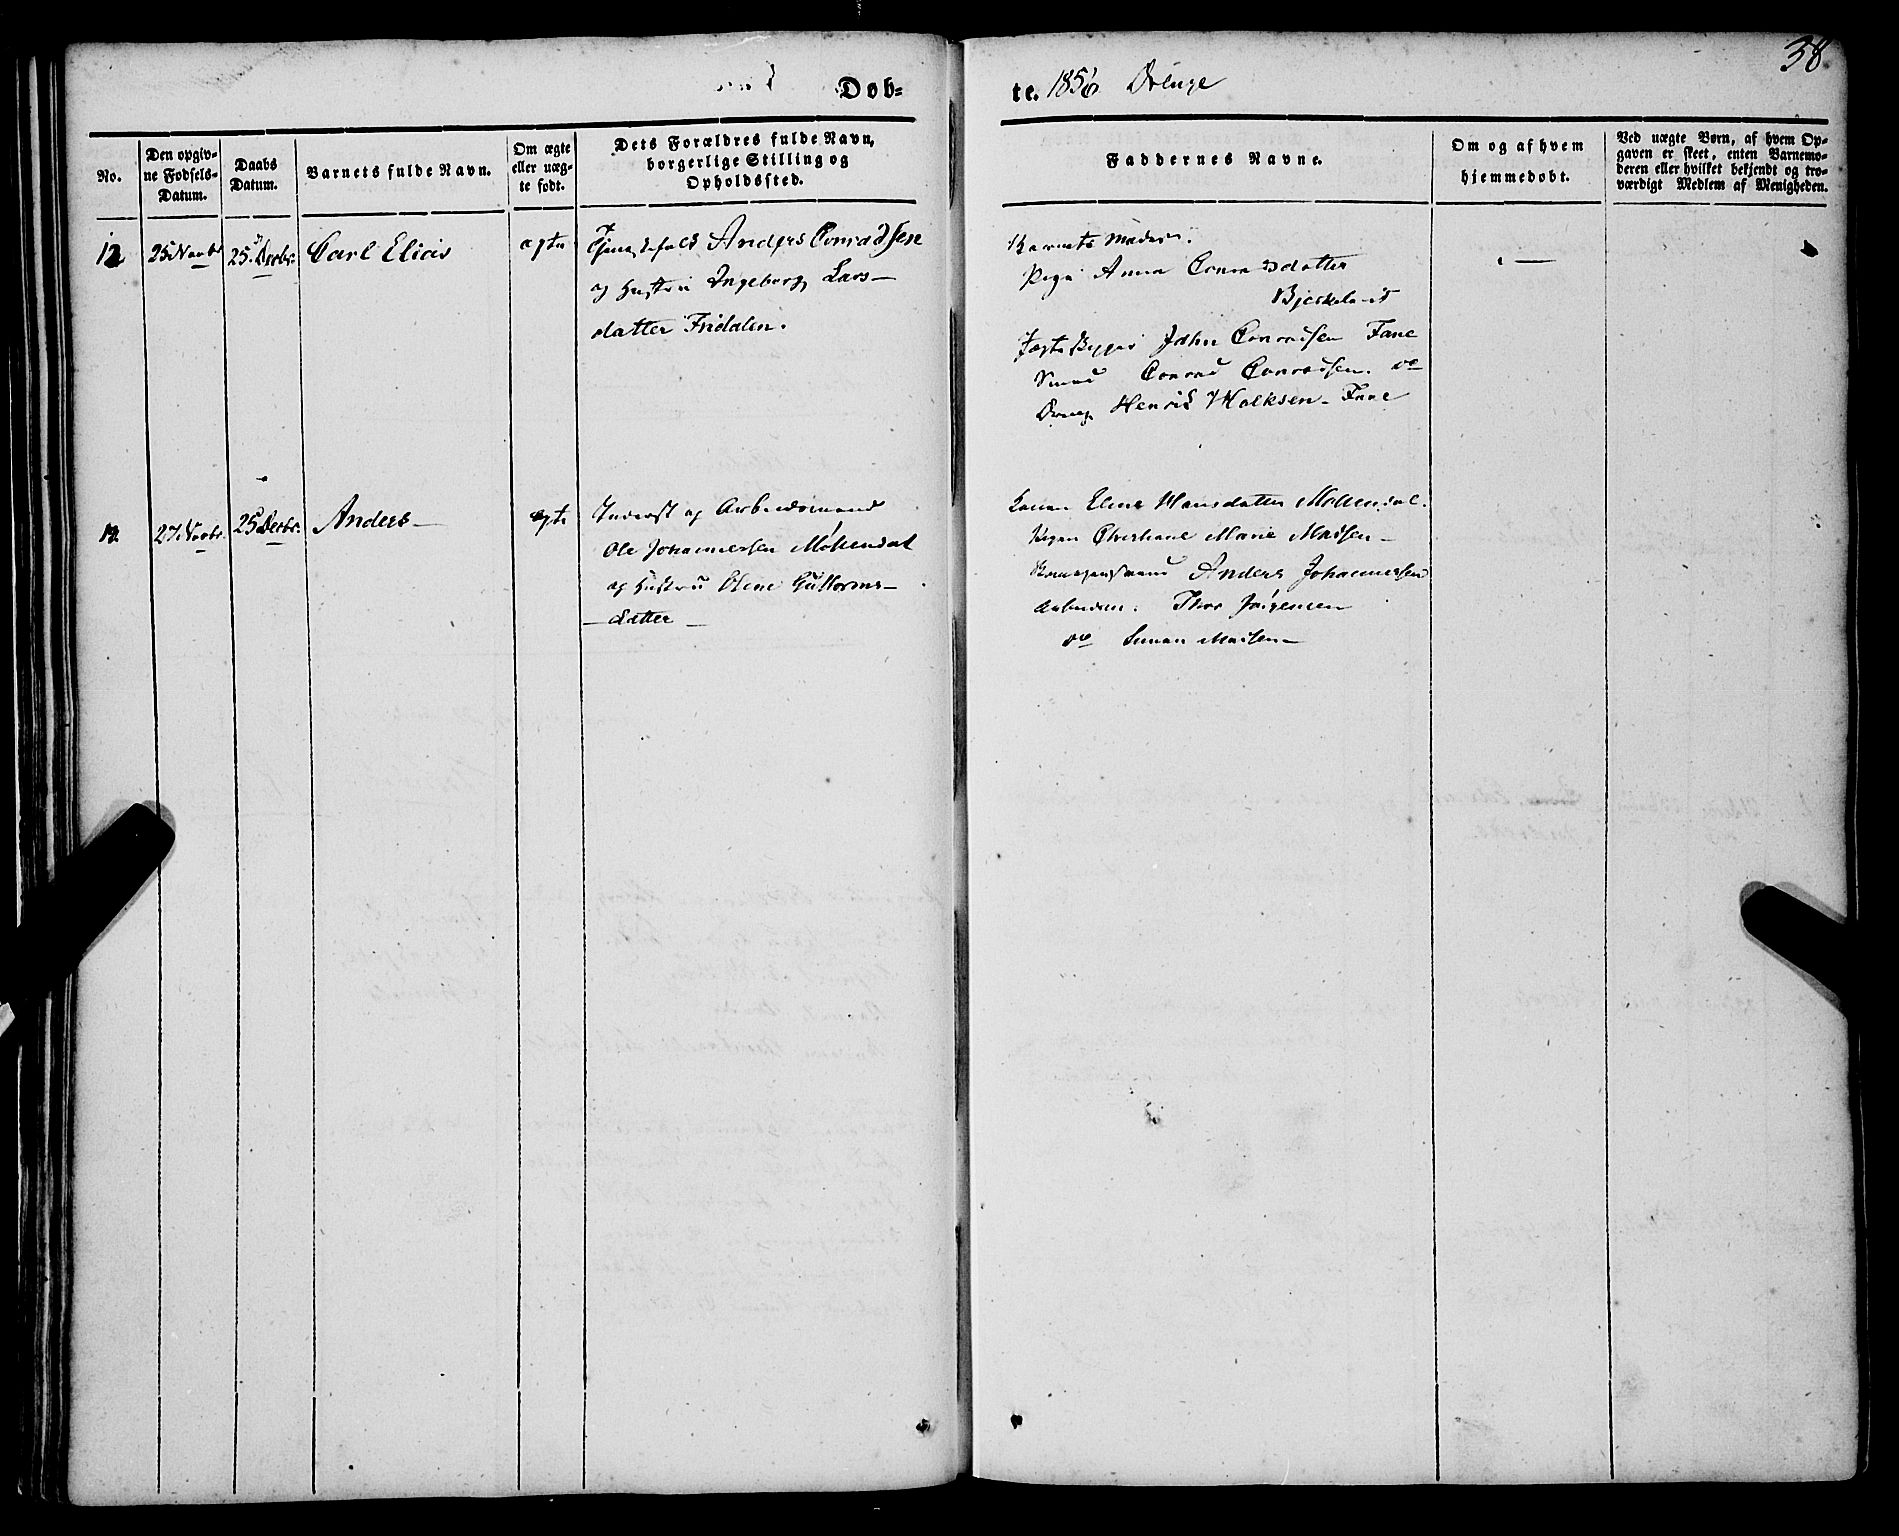 38
Døb=
te. 1856 Drenge
No.
Den opgiv-
ne Fødsels-
Datum.
Daabs
Datum.
Barnets fulde Navn.
Om ægte
eller uæg-
te født.
Dets Forældres fulde Navn,
borgerlige Stilling og
Opholdssted.
Faddernes Navne.
Om og af hvem
hjemmedøbt.
Ved uægte Børn, af hvem Op-
gaven er skeet, enten Barnemo-
deren eller hvilket bekjendt og tro-
værdigt Medlem af Menigheden.
12
25 Novbr
25 Decbr.
Carl Elias
ægte
Tjenestefolk Anders Conradsen
og Hustru Ingeborg Lars-
datter Fridalen.
Barnets Moder.
Pige Anna Conradsdatter
John Conradsen Fane
Smed Conrad Conradsen. do
Dreng Henrik Fane
—
27 Novbr.
25 Decbr.
Anders —
ægte
Inderst og Arbeidsmand
Ole Johannessen Møhlendal
og Hustru Olene Guttorms-
datter —
Konen Elene Hansdatter Møhlendal.
Pigen Marie Madsen —
Anders Johannessen
Thor Jørgensen
do Madsen —